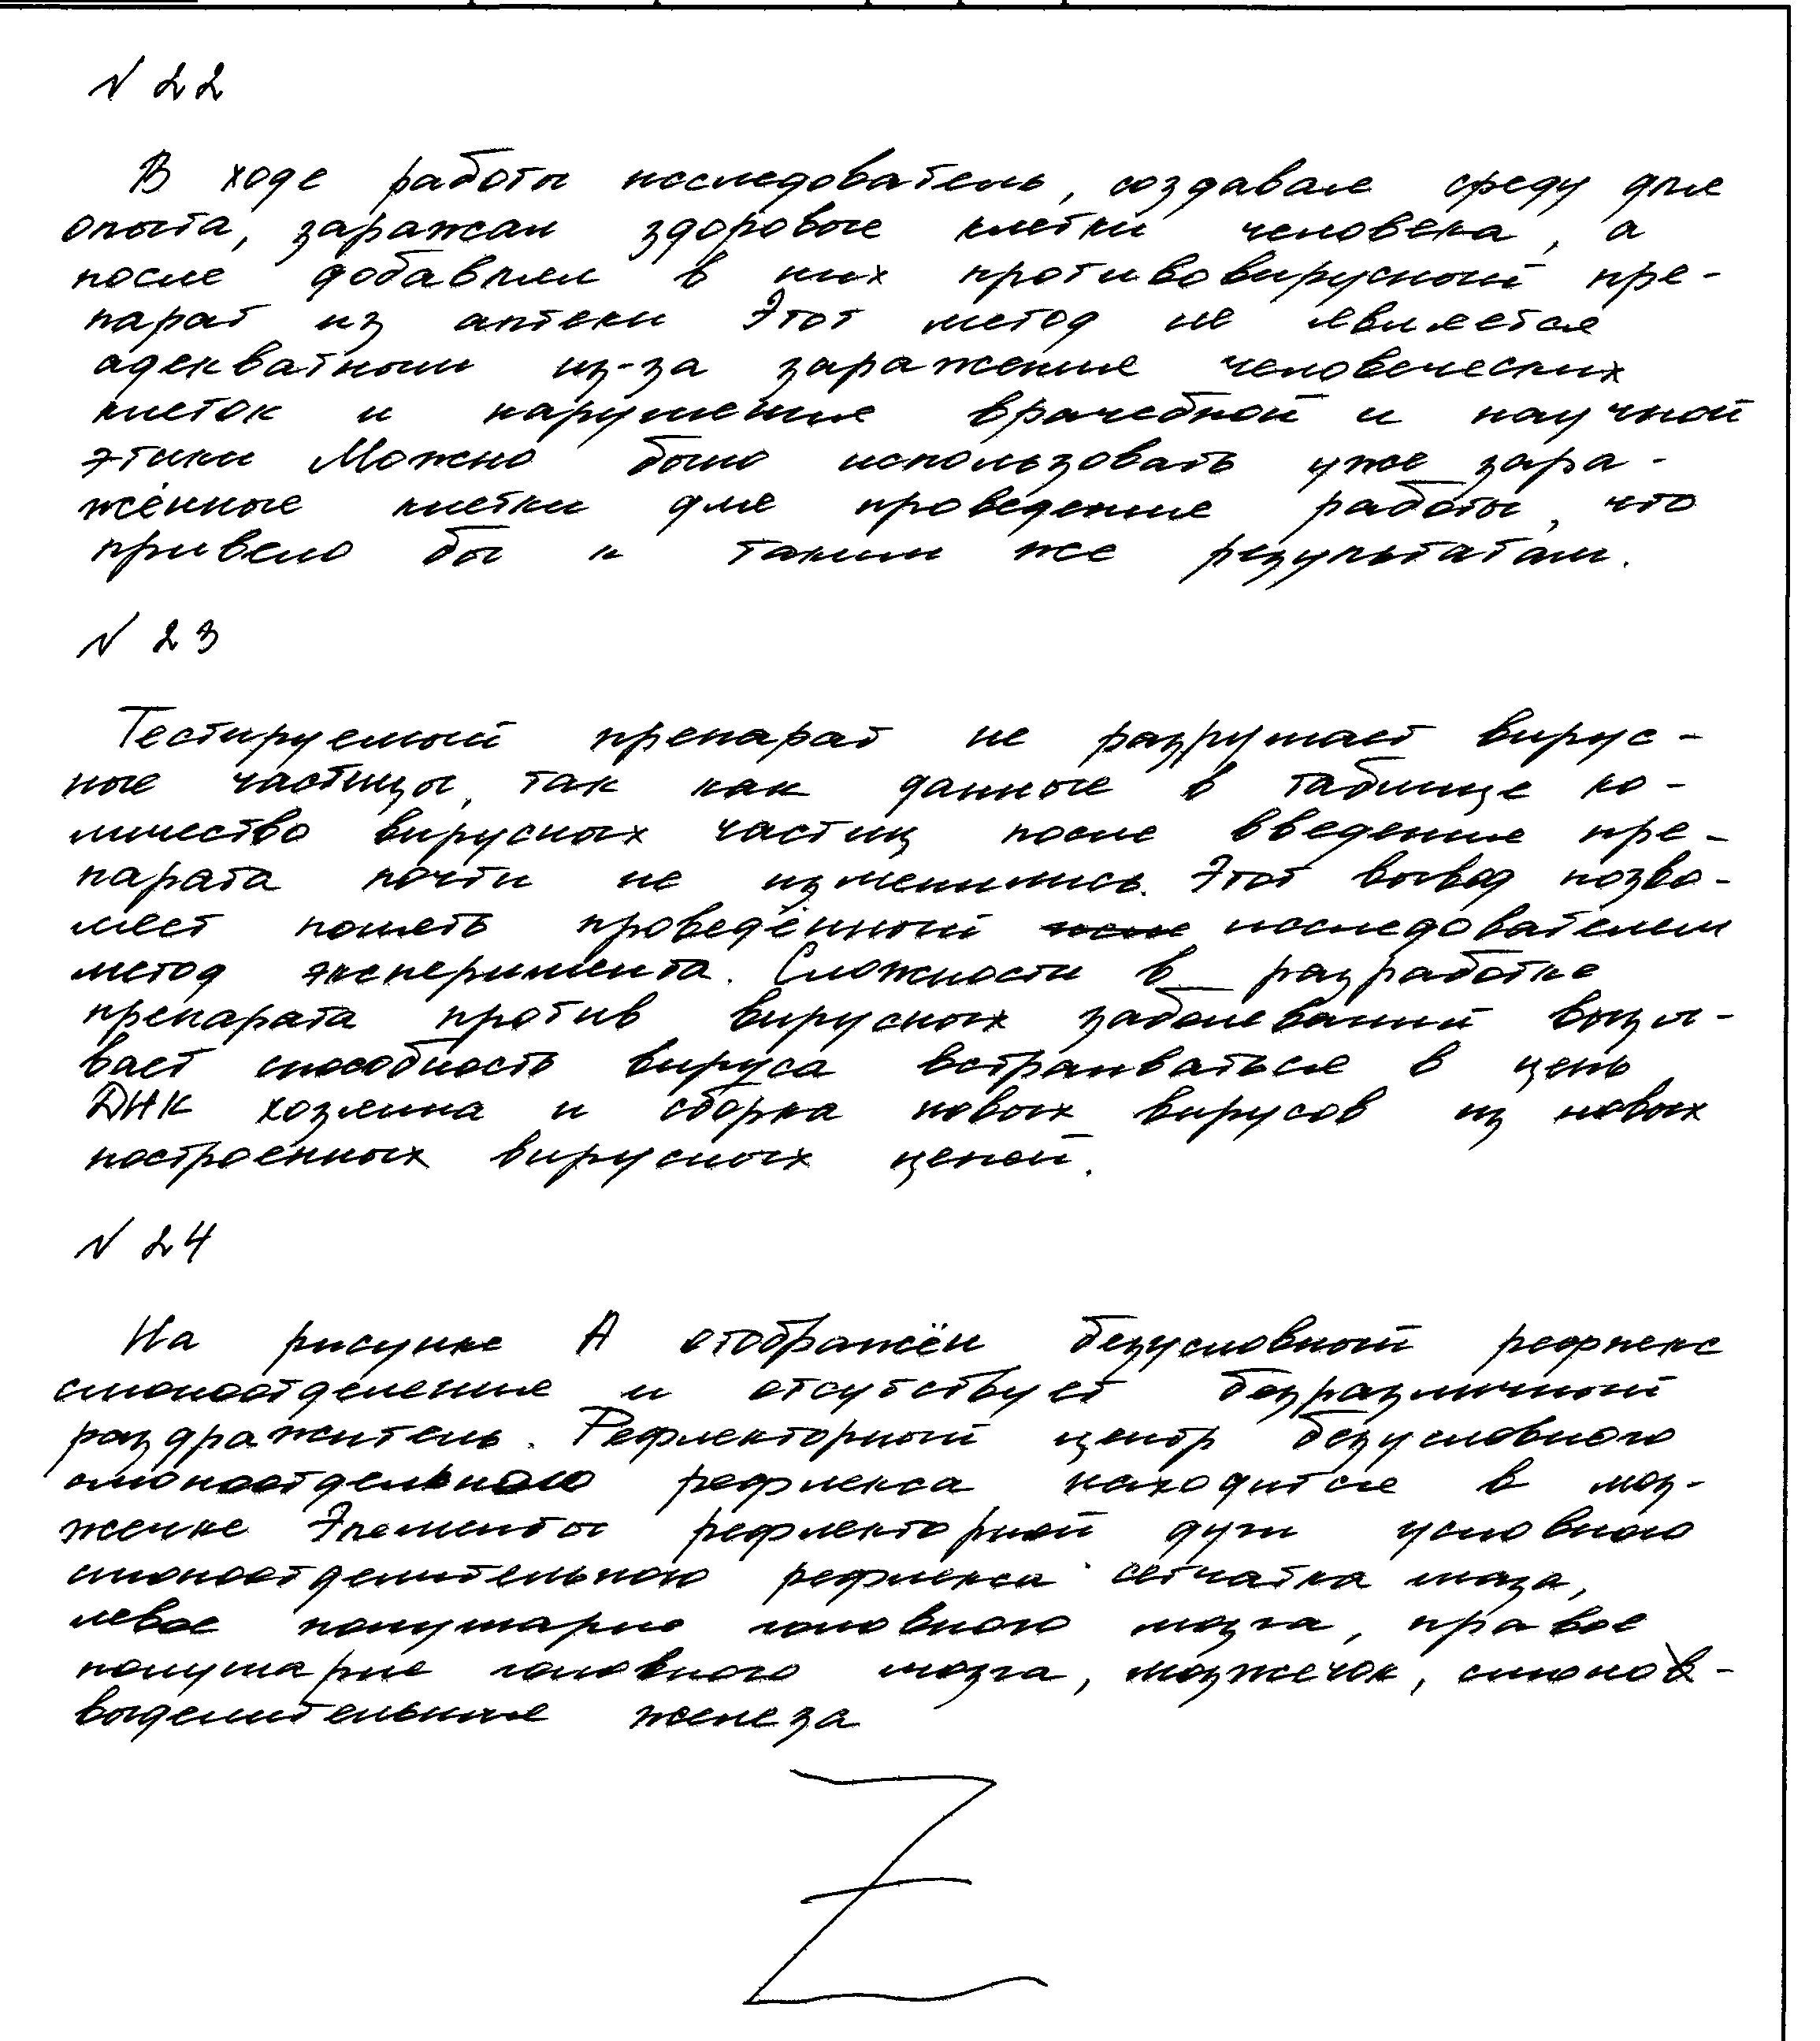 № 22
В ходе работы исследователь, создавая среду для
опыта, заражал здоровые клетки человека, а
после добавлял в них противовирусный пре-
парат из аптеки Этот метод не является
адекватным из-за заражения человеческих
клеток и нарушения врачебной и научной
этики Можно было использовать уже зара-
жённые клетки для проведения работы, что
привело бы к таким же результатам.
№ 23
Тестируемый препарат не разрушает вирус-
ные частицы, так как данные в таблице ко-
личество вирусных частиц после введения пре-
парата почти не изменились. Этот вывод позво-
ляет понять проведённый исследователем
метод эксперимента. Сложности в разработке
препарата против вирусных заболеваний вызы-
вает способность вируса встраиваться в цепь
ДНК хозяина и сборка новых вирусов из новых
построенных вирусных цепей.
№ 24
На рисунке А отображён безусловный рефлекс
слюноотделения и отсутствует безразличный
раздражитель. Рефлекторный центр безусловного
слюноотдельного рефлекса находится в моз-
жечке Элементы рефлекторной дуги условного
слюноотделительного рефлекса: сетчатка глаза,
левое полушарие головного мозга, правое
полушарие головного мозга, мозжечок, слюно-
выделительная железа